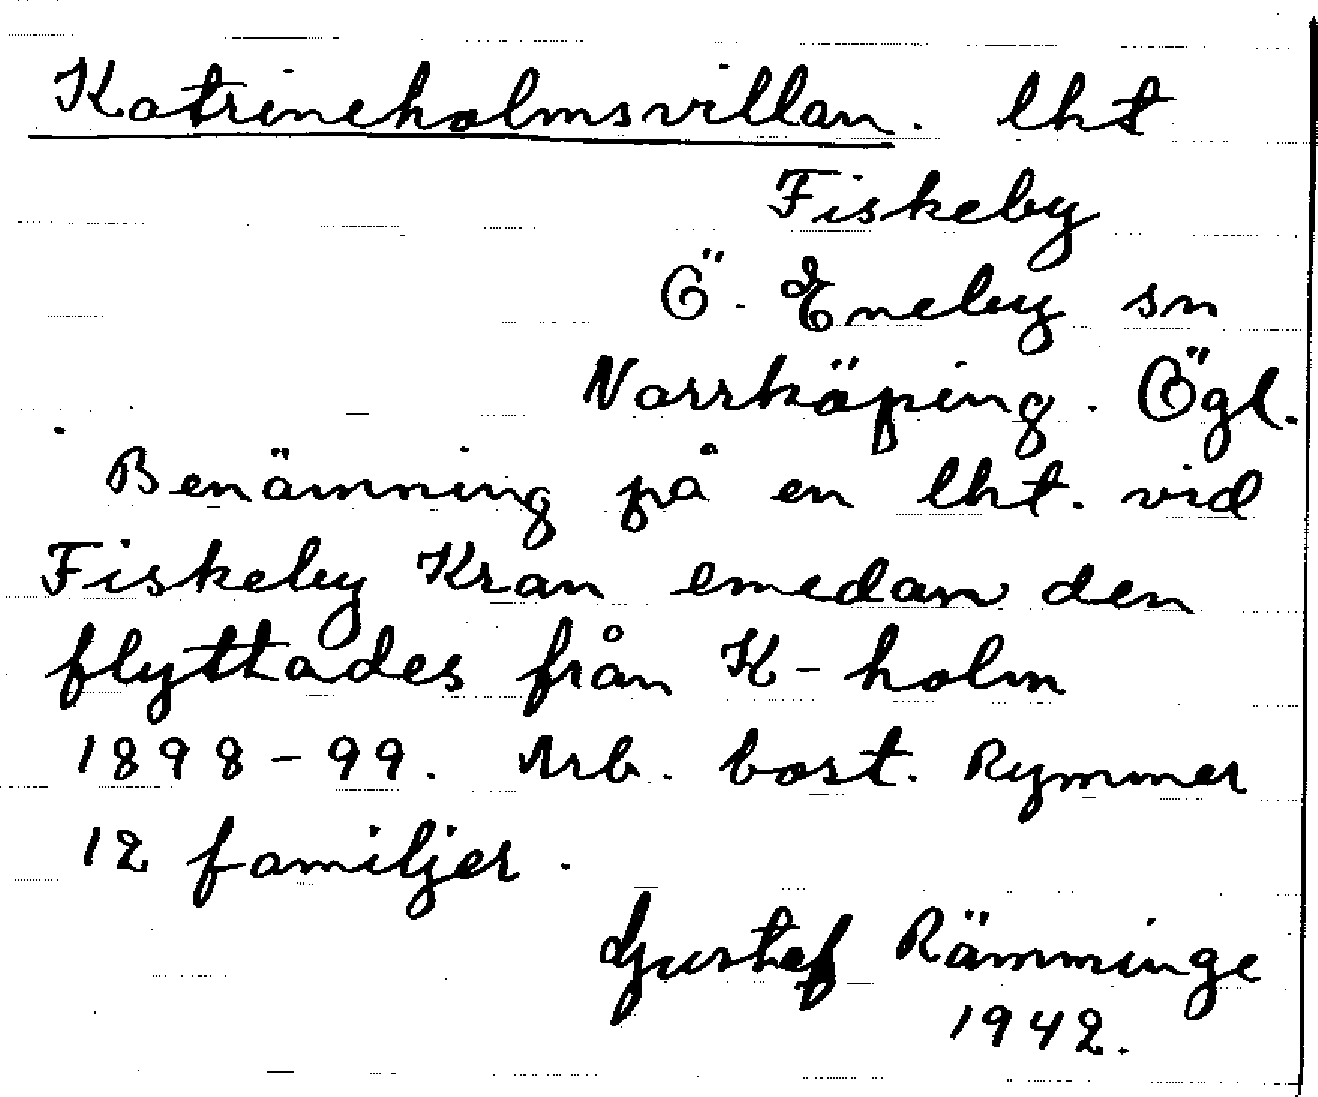 Katrineholmsvillan. lht
Fiskeby
Ö. Eneby sn
Norrköping. Ögl.
Benämning på en lht. vid
Fiskeby Kran emedan den
flyttades från K-holm
1898-99. Arb. bost. Rymmer
12 familjer.
Gustaf Rämminge
1942.